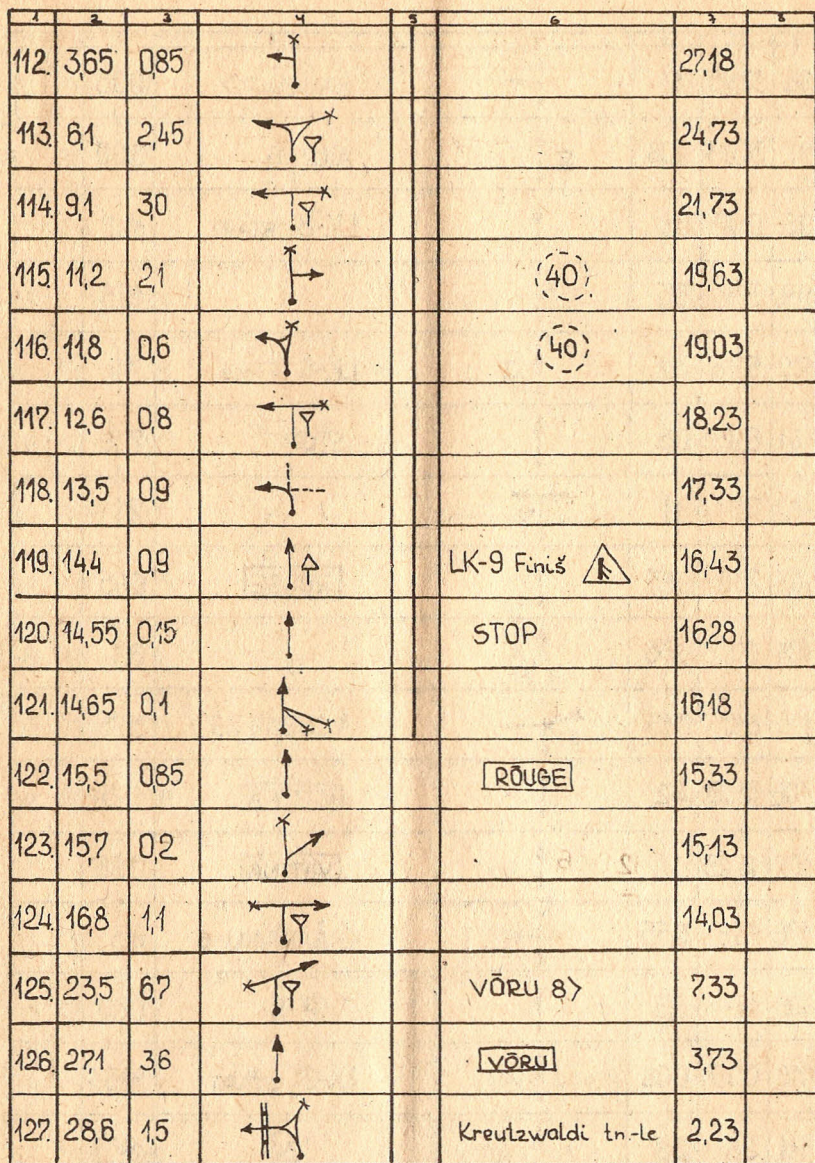 1 2 3 4 5 6 7 8
112. 3,65 0,85 27,18
113. 6,1 2,45 24,73
114. 9,1 3,0 21,73
115. 11,2 2,1 40 19,63
116. 11,8 0,6 40 19,03
117. 12,6 0,8 18,23
118. 13,5 0,9 17,33
119. 14,4 0,9 LK-9 Finiš 16,43
120 14,55 0,15 STOP 16,28
121. 14,65 0,1 16,18
122. 15,5 0,85 RÕUGE 15,33
123. 15,7 0,2 15,13
124. 16,8 1,1 14,03
125. 23,5 6,7 VÕRU 8> 7,33
126. 27,1 3,6 VÕRU 3,73
127. 28,6 1,5 Kreutzwaldi tn.-le 2,23